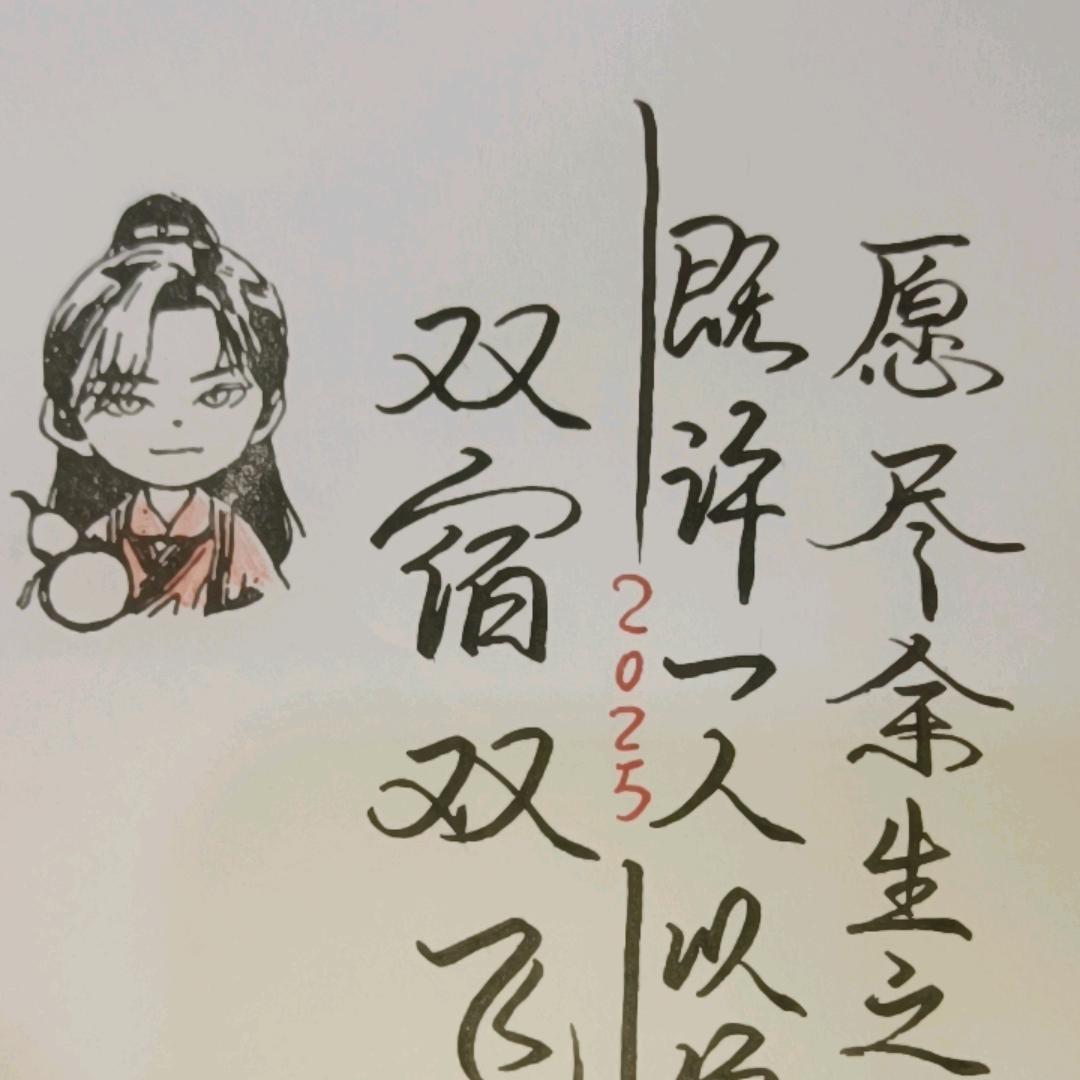 愿尽余生之
既许一人以
2025
双宿双飞